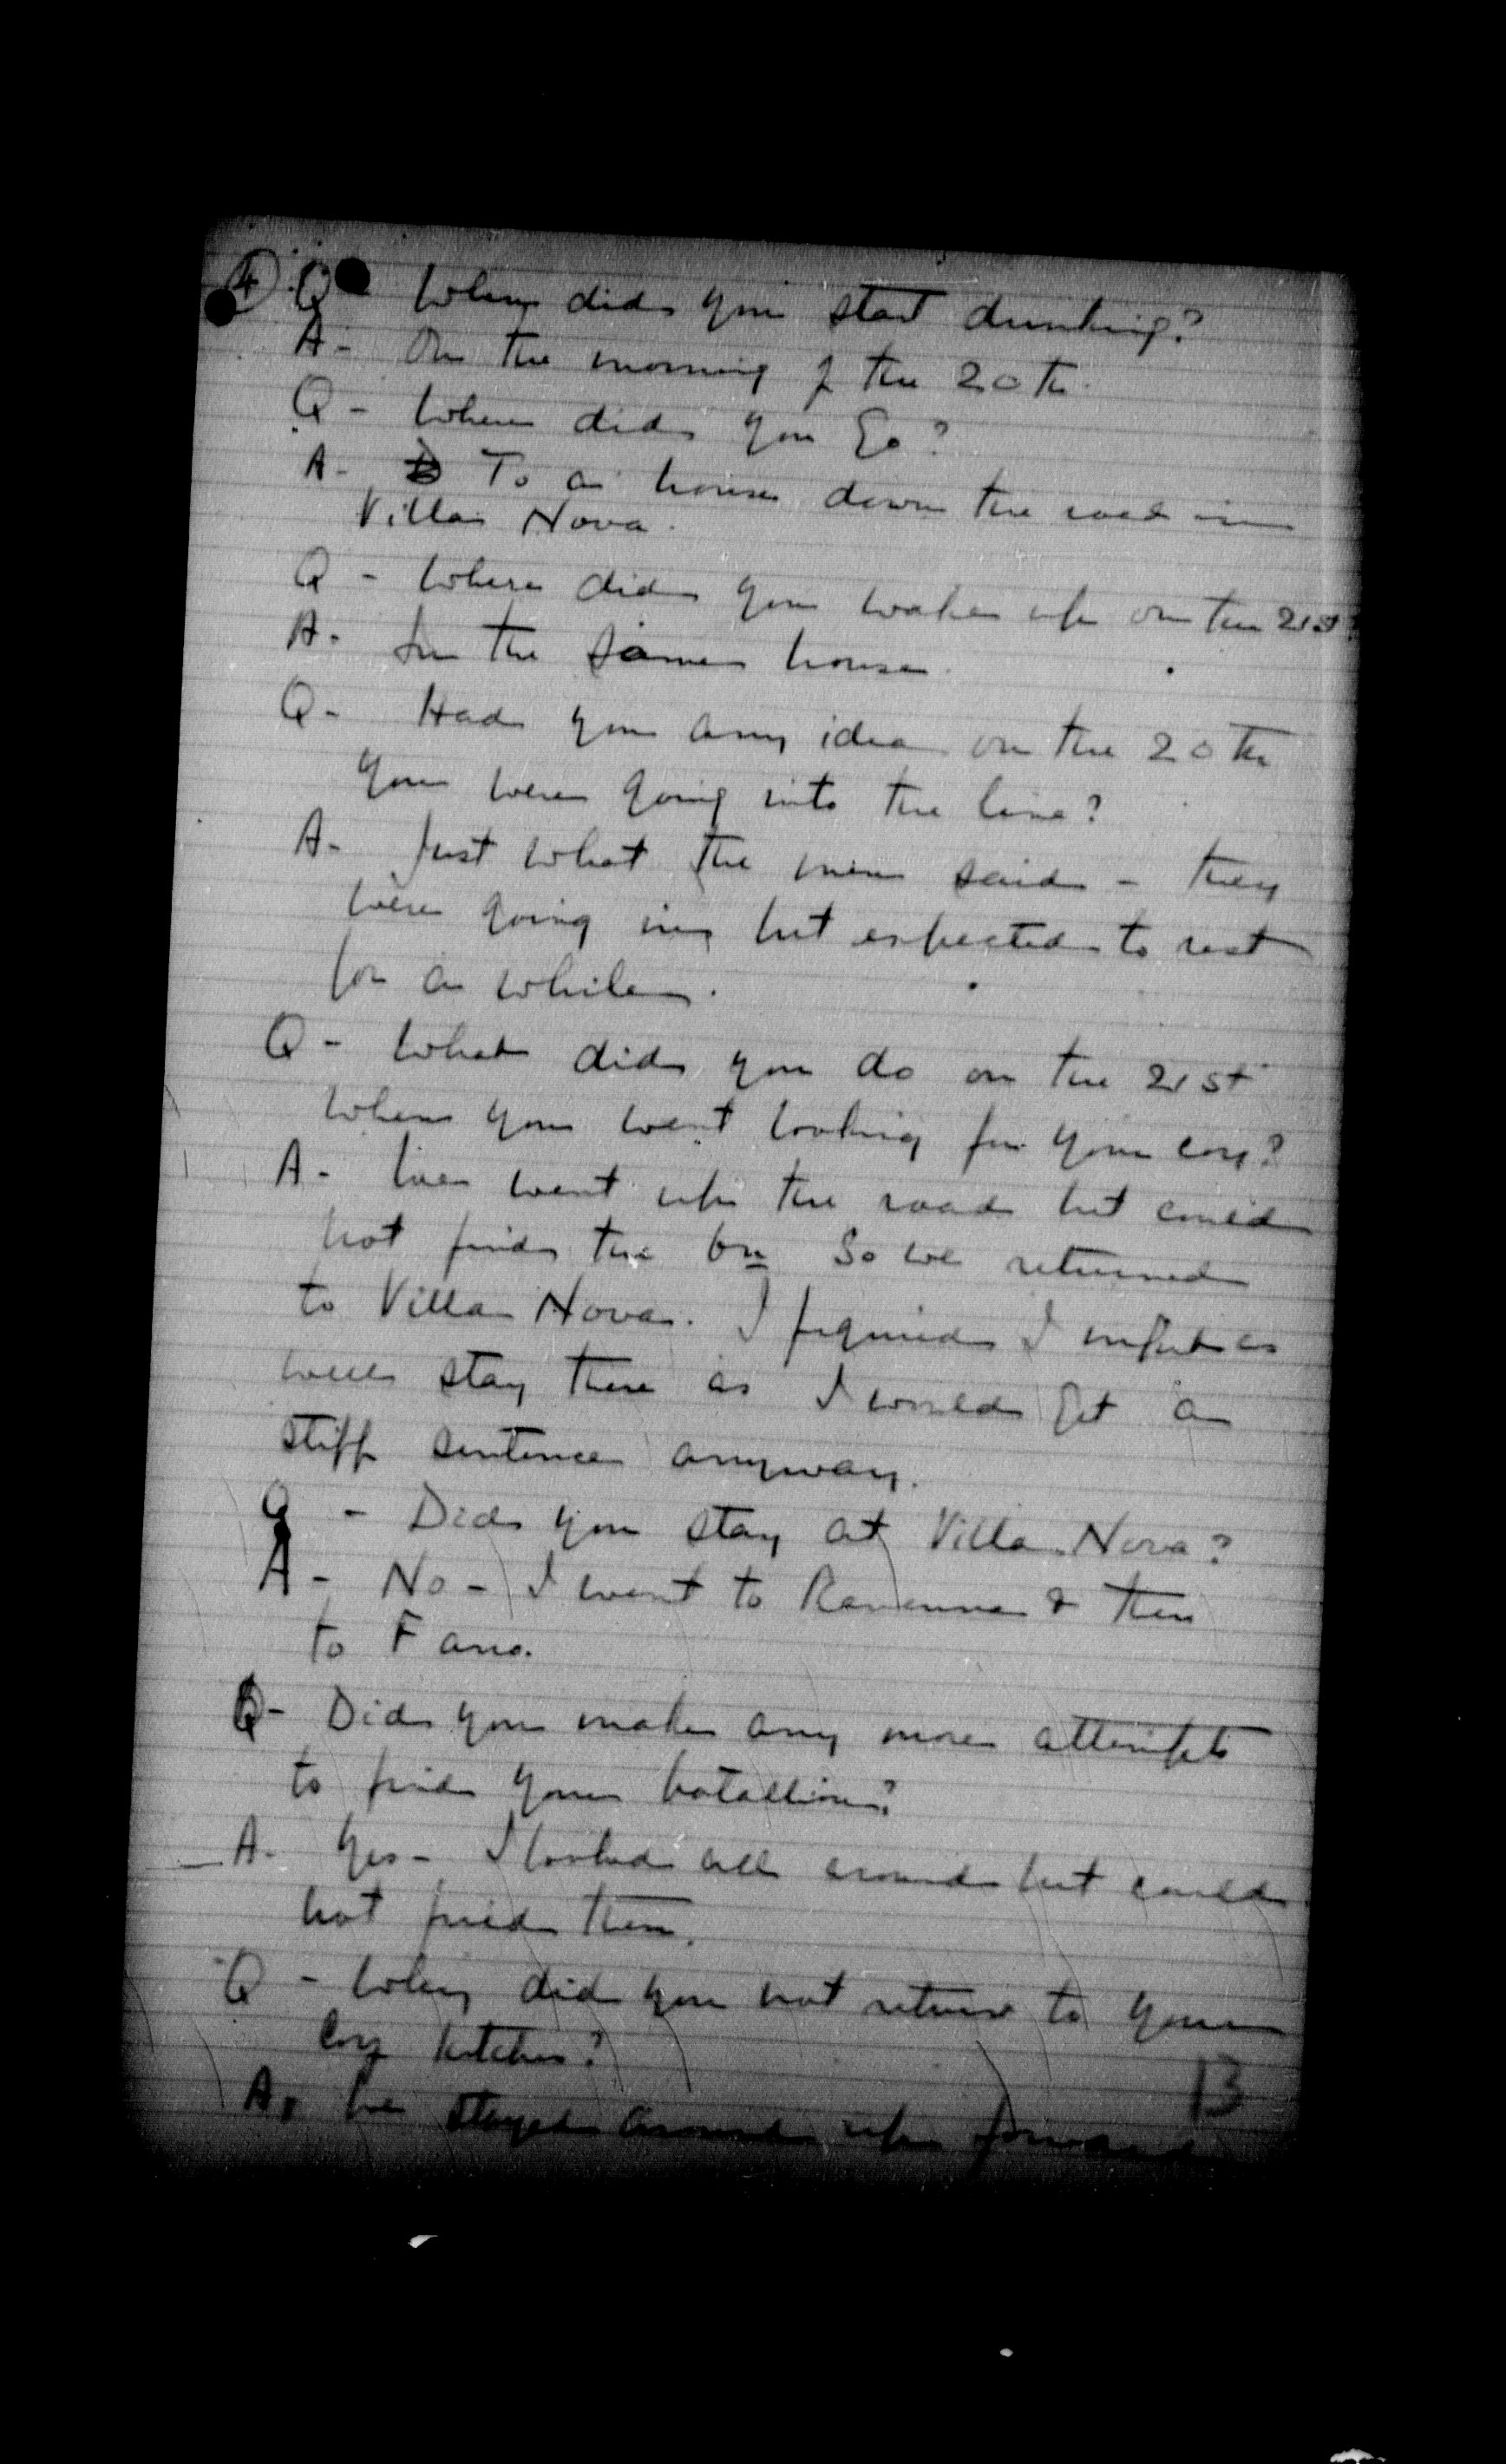 4 Q - When did you start drinking?
A - On the morning of the 20th.
Q - Where did you go?
A - To a house down the road in
Villa Nova.
Q - Where did you wake up on the 21st?
A - In the same house.
Q - Had you any idea on the 20th
you were going into the line?
A - Just what the men said - they
were going in, but expected to rest
for a while.
Q - What did you do on the 21st
when you went looking for your coy?
A - We went up the road but could
not find the bn so we returned
to Villa Nova. I figured I might as
well stay there as I would get a
stiff sentence anyway.
Q - Did you stay at Villa Nova?
A - No - I went to Ravenna & then
to Fano.
Q - Did you make any more attempts
to find your batallion?
A - Yes - I looked all around but could
not find them.
Q - Why did you not return to your
coy kitchen?
A - We stayed around up forward
13